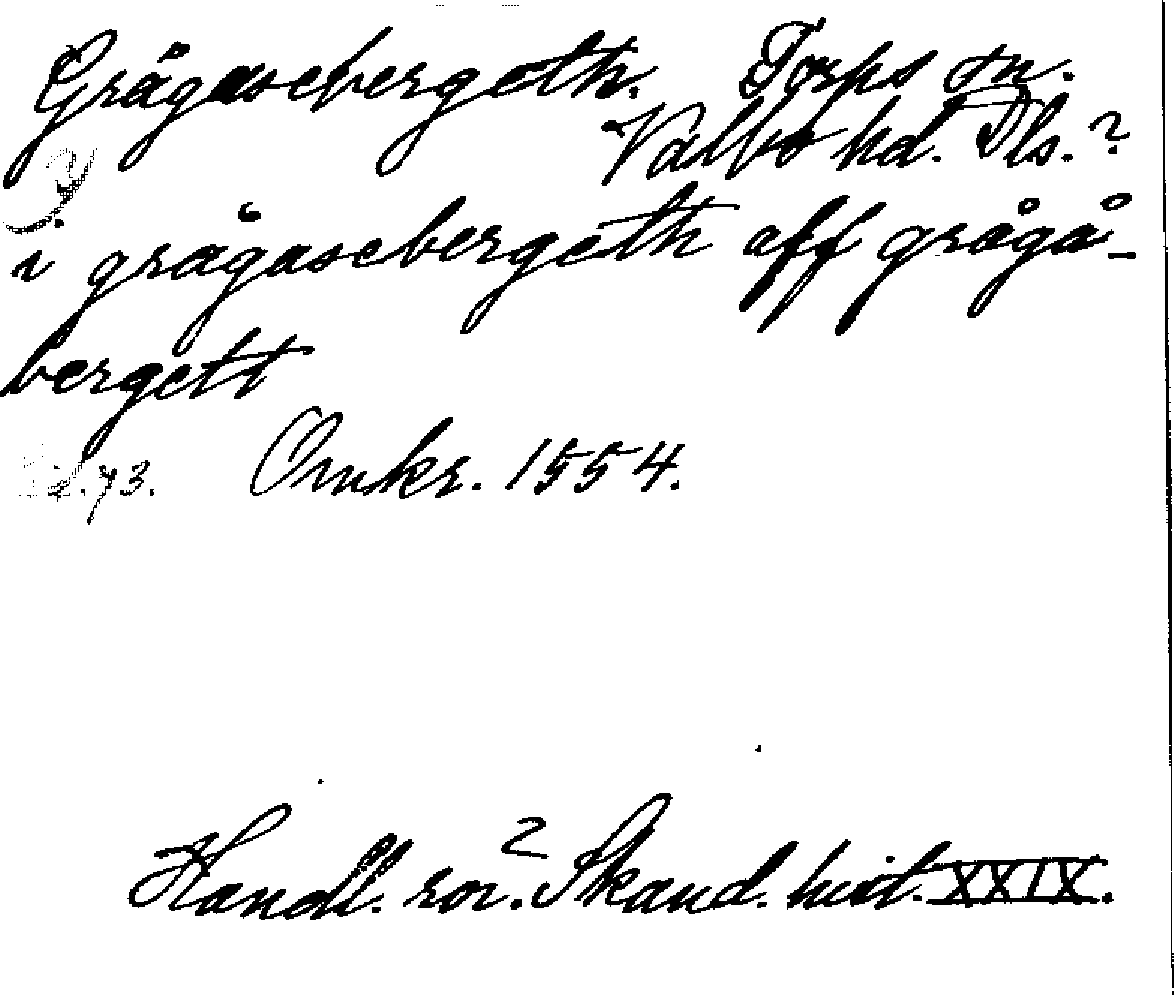 Grågasebergeth. Torps sn.
Valbo hd. Dls.?
i grågasebergeth aff grågå-
bergett
Sid. 73. Omkr. 1554.
Handl. rör. Skand. hist. XXIX.